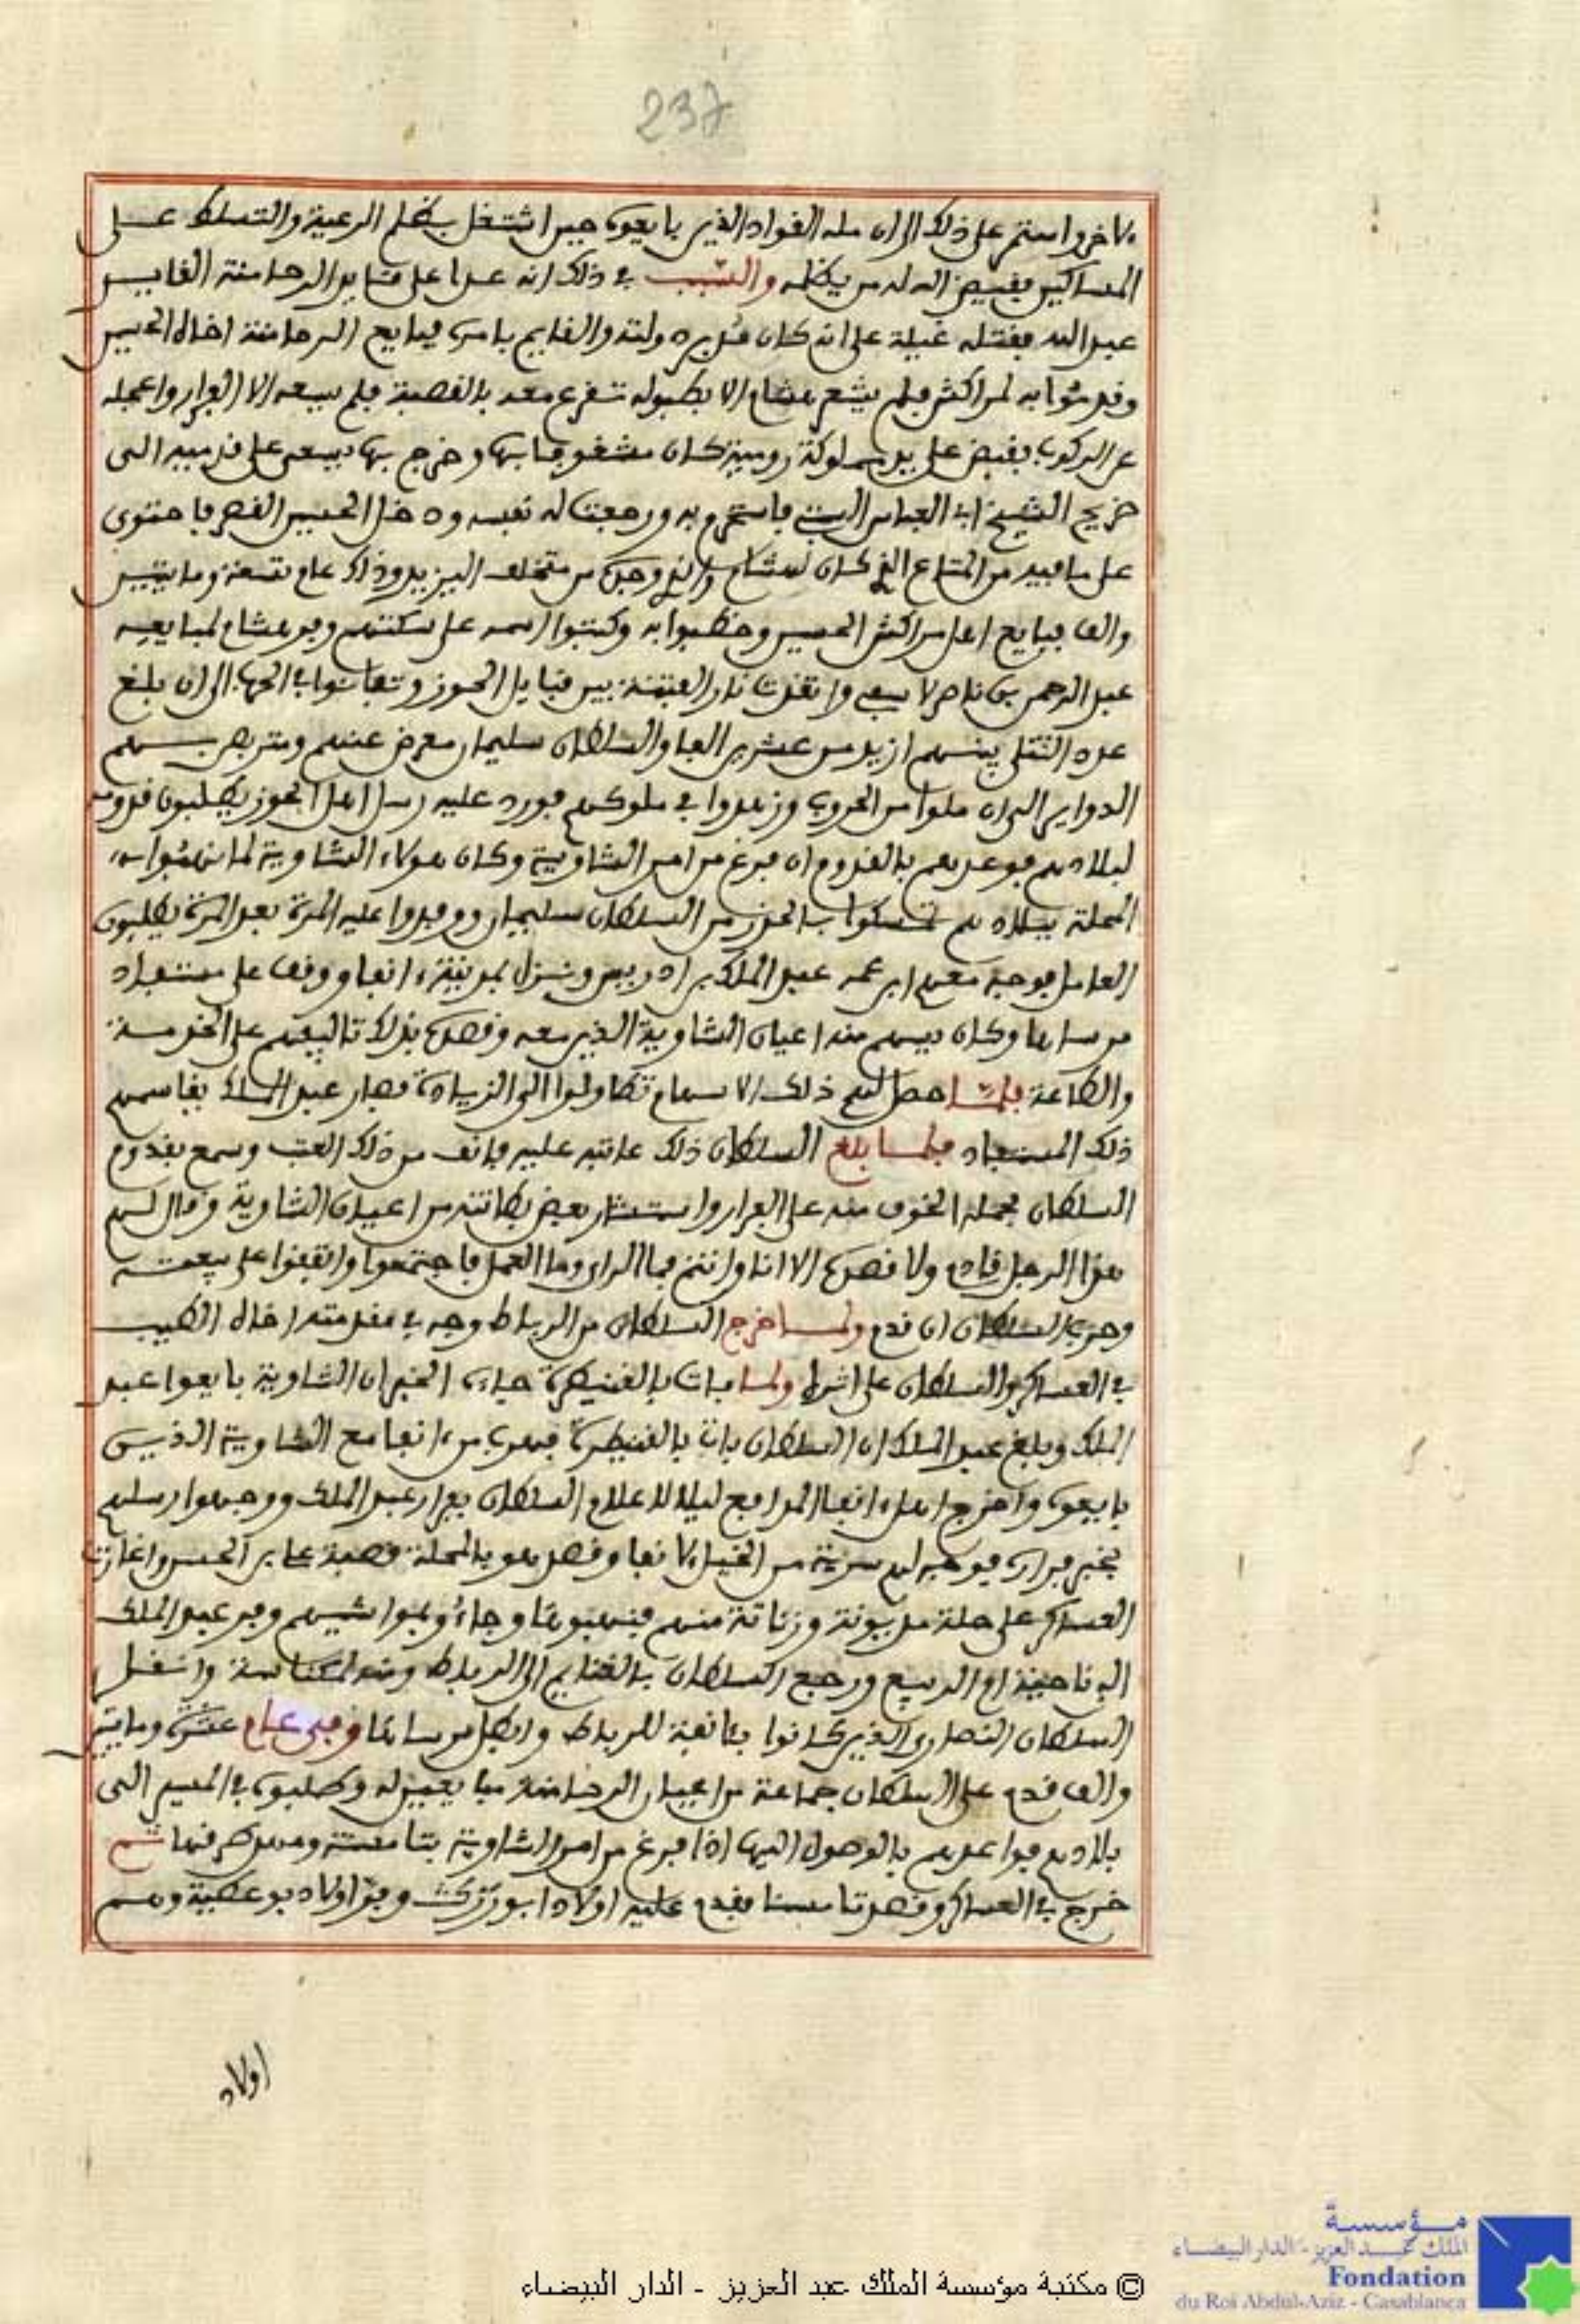 237
الاخر واستمر على ذلك الى ان مله القواد الذين بايعوه حين اشتغل بظلم الرعية والتسلط على
المساكين فقيض الله له من يظلمه والسبب في ذلك انه عدا على قتل الرحامنة القايد
عبد الله فقتله غيلة على انه كان مدبر دولته والقايم بامره فبايع الرحامنة اخاه الحسين
وقدموا به لمراكش فلم يشعر هشام الا بطبوله تقرع معه بالقصبة فلم يسعه الا الفرار واعجله
عن الركوب فقبض على يد مملوكة رومية كان مشغوفا بها وخرج بها يسعى على قدميه الى
ضريح الشيخ ابي العباس السبتي فاستحرم به ورجعت له نفسه ودخل الحسين القصر فاحتوى
على ما فيه من المتاع الذي كان لهشام والذي وجده من متخلف اليزيد وذلك عام تسعة ومايتين
والف فبايع اهل مراكش الحسين وخطبوا به وكتبوا اسمه على سكتهم وفر هشام لمبايعه
عبد الرحمن بن ناصر لاسفي واتقدت نار الفتنة بين قبايل الحوز وتفانوا في الحرب الى ان بلغ
عدد القتلى بينهم ازيد من عشرين الفا والسلطان سليمان معرض عنهم ومتربص بهم
الدواير الى ان ملوا من الحروب وزهدوا في ملوكهم فورد عليه رسل اهل الحوز يطلبون قدومه
لبلادهم فوعدهم بالقدوم ان فرغ من امر الشاوية وكان هؤلاء الشاوية لما نهبوا
المحلة ببلادهم تمسكوا بالحذر من السلطان سليمان ووفدوا عليه المرة بعد المرة يطلبون
العامل فوجه معهم ابن عمه عبد الملك بن ادريس ونزل بمدينة انفا ووقف على مستفاد
مرساها وكان يسهم منه اعيان الشاوية الذين معه وقصده بذلك تاليفهم على الخدمة
والطاعة فلما حصل لهم ذلك الاسهام تطاولوا الى الزيادة فصار عبد الملك يقاسمهم
ذلك المستفاد فلما بلغ السلطان ذلك عاتبه عليه فانف من ذلك العتب وسمع بقدوم
السلطان فحمله الخوف منه على الفرار واستشار بعض بطانته من اعيان الشاوية وقال لهم
هذا الرجل قادم ولا قصده الا انا وانتم فما الراي وما العمل فاجتمعوا واتفقوا على بيعته
وحرب السلطان ان قدم ولما خرج السلطان من الرباط وجه في مقدمته اخاه الطيب
في العساكر والسلطان على اثره ولما بات بالقنيطرة جاءه الخبر ان الشاوية بايعوا عبد
الملك وبلغ عبد الملك ان السلطان بات بالقنيطرة فهرب من انفا مع الشاوية الذين
بايعوه واخرج اهل انفا المدافع ليلا لاعلام السلطان بفرار عبد الملك ووجهوا رسلهم
بخبر فراره فوجه لهم سرية من الخيل لانفا وقصد هو بالمحلة قصبة علي بن الحسن واغارت
العساكر على حلة مديونة وزناتة منهم فنهبوها وجاءوا بمواشيهم وفر عبد الملك
الى ناحية ام الربيع ورجع السلطان بالغنايم الى الرباط ومنه لمكناسة وانتقل
السلطان النصارى الذين كانوا بانفة للرباط وابطل مرساها وفي عام عشرة ومايتين
والف قدم على السلطان جماعة من اعيان الرحامنة مبايعين له وطلبوه في المسير الى
بلادهم فواعدهم بالوصول اليها اذا فرغ من امر الشاوية بتامسنة ومهد طرقها ثم
خرج في العساكر وقصد تامسنا فقدم عليه اولاد ابو رزك وفر اولاد بو عطية وهم
اولاد
مؤسسة
الملك عبد العزيز - الدار البيضاء
Fondation
du Roi Abdul-Aziz - Casablanca
© مكتبة مؤسسة الملك عبد العزيز - الدار البيضاء